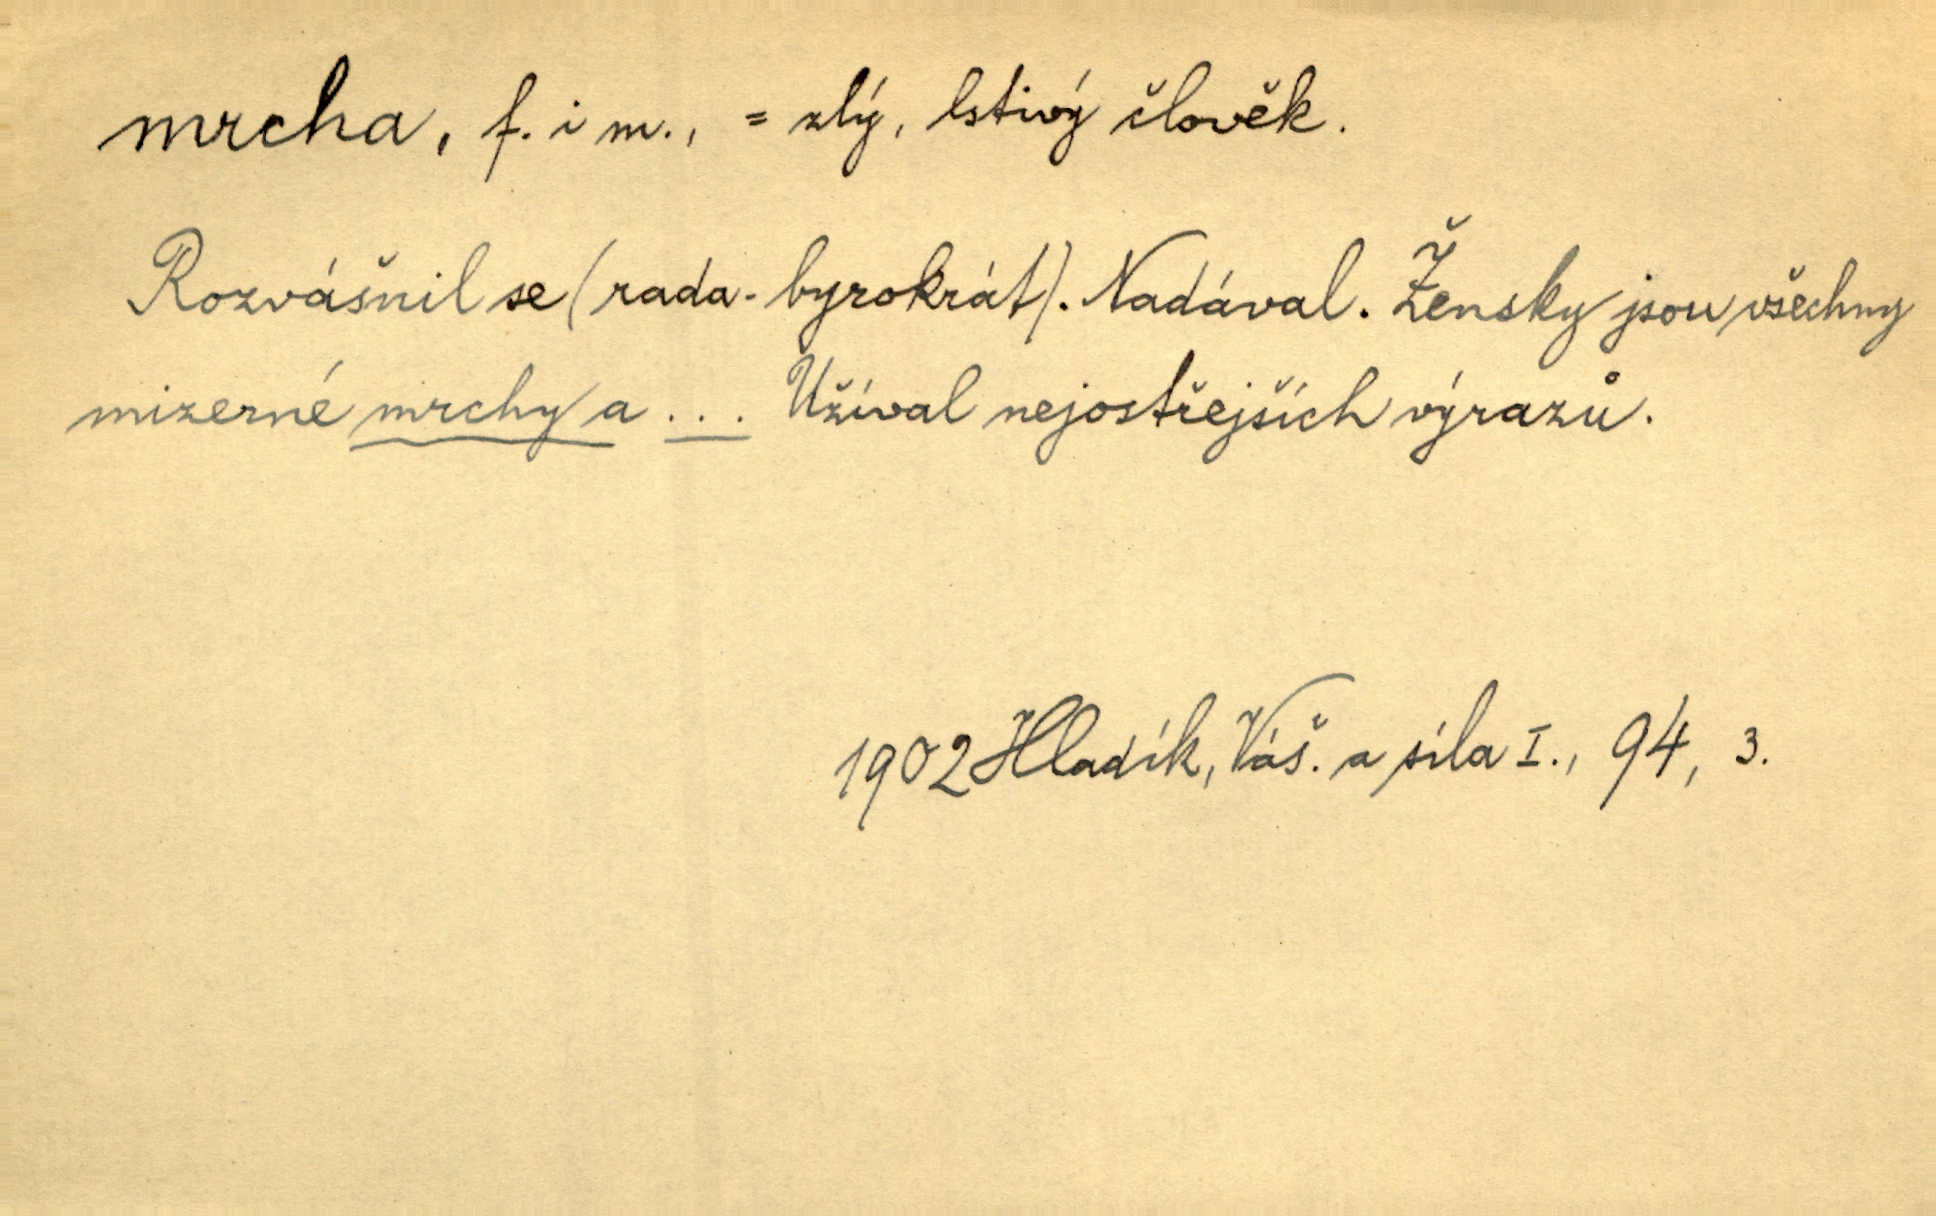 mrcha, f. i m., = zlý, lstivý člověk.
Rozvášnil se (rada-byrokrát). Nadával. Žensky jsou všechny
mizerné mrchy a ... Užíval nejostřejších výrazů.
1902 Hladík, Váš. a síla I., 94, 3.